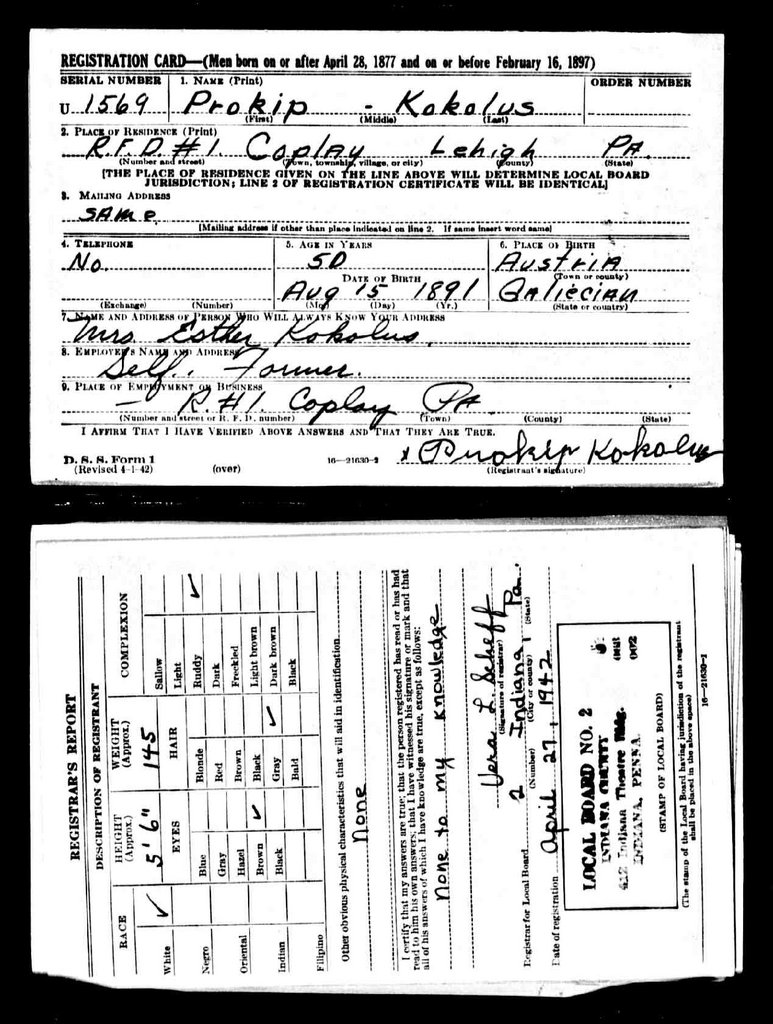 REGISTRATION CARD—(Men born on or after April 28, 1877 and on or before February 16, 1897)
SERIAL NUMBER 1. NAME (Print) ORDER NUMBER
U 1569 Prokip - Kokolus
(First) (Middle) (Last)
2. PLACE OF RESIDENCE (Print)
R.F.D. #1. Coplay Lehigh PA.
(Number and street) (Town, township, village, or city) (County) (State)
[THE PLACE OF RESIDENCE GIVEN ON THE LINE ABOVE WILL DETERMINE LOCAL BOARD
JURISDICTION; LINE 2 OF REGISTRATION CERTIFICATE WILL BE IDENTICAL]
3. MAILING ADDRESS
SAme
[Mailing address if other than place indicated on line 2. If same insert word same]
4. TELEPHONE 5. AGE IN YEARS 6. PLACE OF BIRTH
No. 50 AustriA
(Town or county)
DATE OF BIRTH
Aug 15 1891 Galiecian
(Exchange) (Number) (Mo.) (Day) (Yr.) (State or country)
7. NAME AND ADDRESS OF PERSON WHO WILL ALWAYS KNOW YOUR ADDRESS
Mrs. Esther Kokolus.
8. EMPLOYER'S NAME AND ADDRESS
Self. Farmer.
9. PLACE OF EMPLOYMENT OR BUSINESS
— R.#1. Coplay Pa.
(Number and street or R. F. D. number) (Town) (County) (State)
I AFFIRM THAT I HAVE VERIFIED ABOVE ANSWERS AND THAT THEY ARE TRUE.
D. S. S. Form 1
(Revised 4-1-42) (over) 16—21630-2 x Prokip Kokolus
(Registrant's signature)
REGISTRAR'S REPORT
DESCRIPTION OF REGISTRANT
RACE HEIGHT (Approx.) WEIGHT (Approx.) COMPLEXION
5' 6" 145
White ✓ EYES HAIR Sallow
Light
Negro Blue Blonde Ruddy ✓
Gray Red Dark
Oriental Hazel Brown Freckled
Brown ✓ Black Light brown
Indian Black Gray ✓ Dark brown
Filipino Bald Black
Other obvious physical characteristics that will aid in identification
None
I certify that my answers are true; that the person registered has read or has had
read to him his own answers; that I have witnessed his signature or mark and that
all of his answers of which I have knowledge are true, except as follows:
None to my knowledge
Vera L. Scheff
(Signature of registrar)
Registrar for Local Board 2 Indiana Pa.
(Number) (City or county) (State)
Date of registration April 27, 1942
LOCAL BOARD NO. 2
INDIANA COUNTY
412 Indiana Theatre Bldg. 002
INDIANA, PENNA.
(STAMP OF LOCAL BOARD)
(The stamp of the Local Board having jurisdiction of the registrant
shall be placed in the above space)
16—21630-2